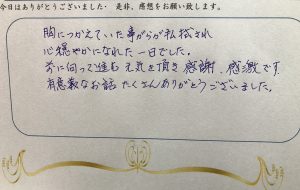 今日はありがとうございました。是非、感想をお願い致します。
胸につかえていた事がらが払拭され
心穏やかになれた一日でした。
前に向って進む元気を頂き感謝、感激です
有意義なお話たくさんありがとうございました。